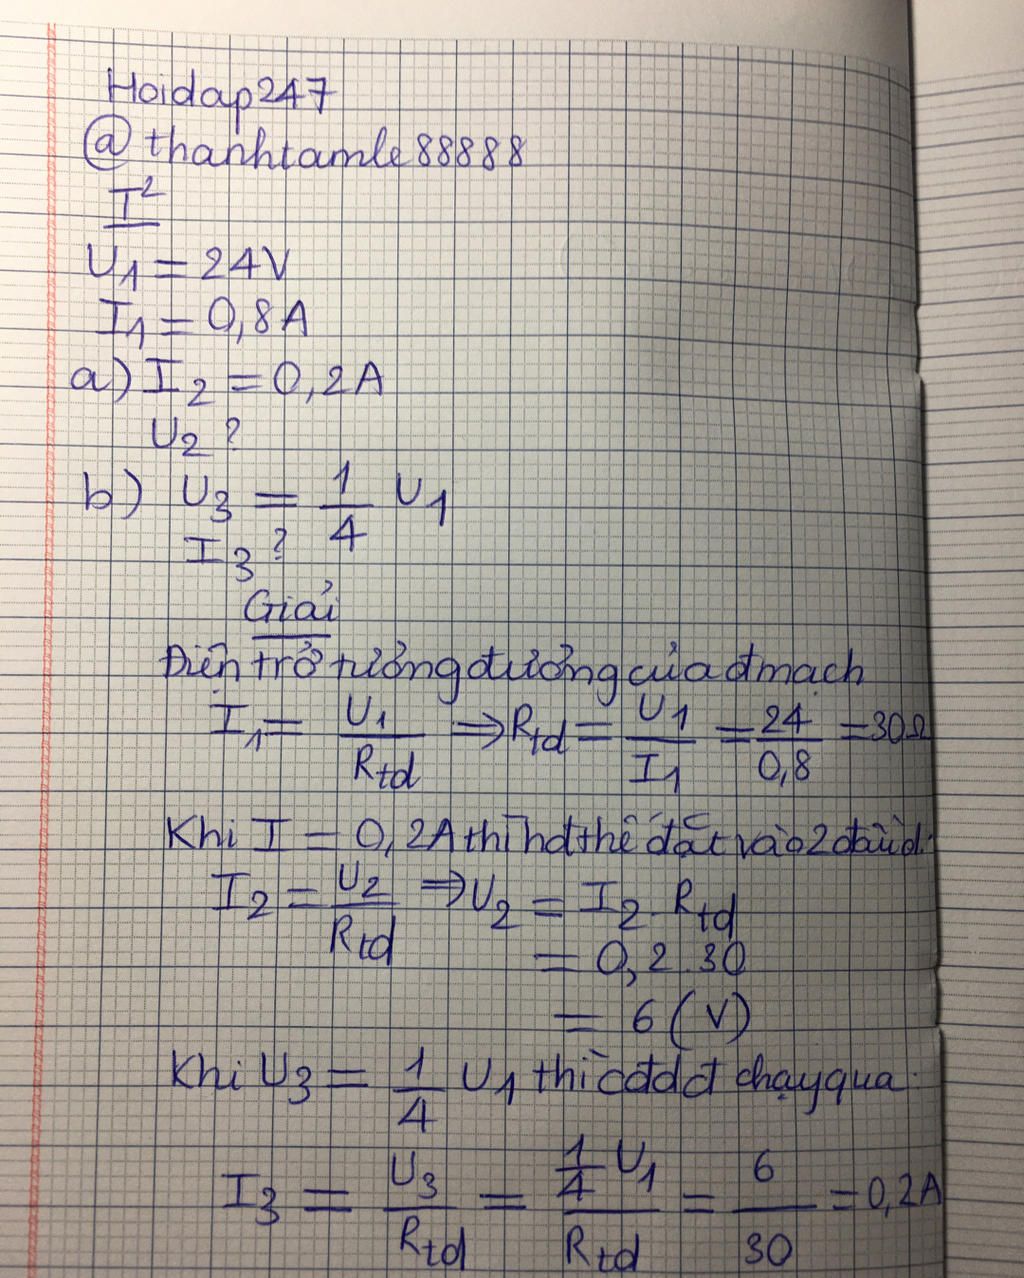 Hoidap247
@thanhtamle88888
I²
U1 = 24V
I1 = 0,8A
a) I2 = 0,2A
U2 ?
b) U3 = 1/4 U1
I3 ?
Giải
Điện trở tương đương của đmạch
I1 = U1/Rtd ⇒ Rtd = U1/I1 = 24/0,8 = 30Ω
Khi I = 0,2A thì hđthế đặt vào 2 đầu d:
I2 = U2/Rtd ⇒ U2 = I2 . Rtd
= 0,2.30
= 6 (V)
Khi U3 = 1/4 U1 thì cđdđ chạy qua:
I3 = U3/Rtd = 1/4 U1/Rtd = 6/30 = 0,2A